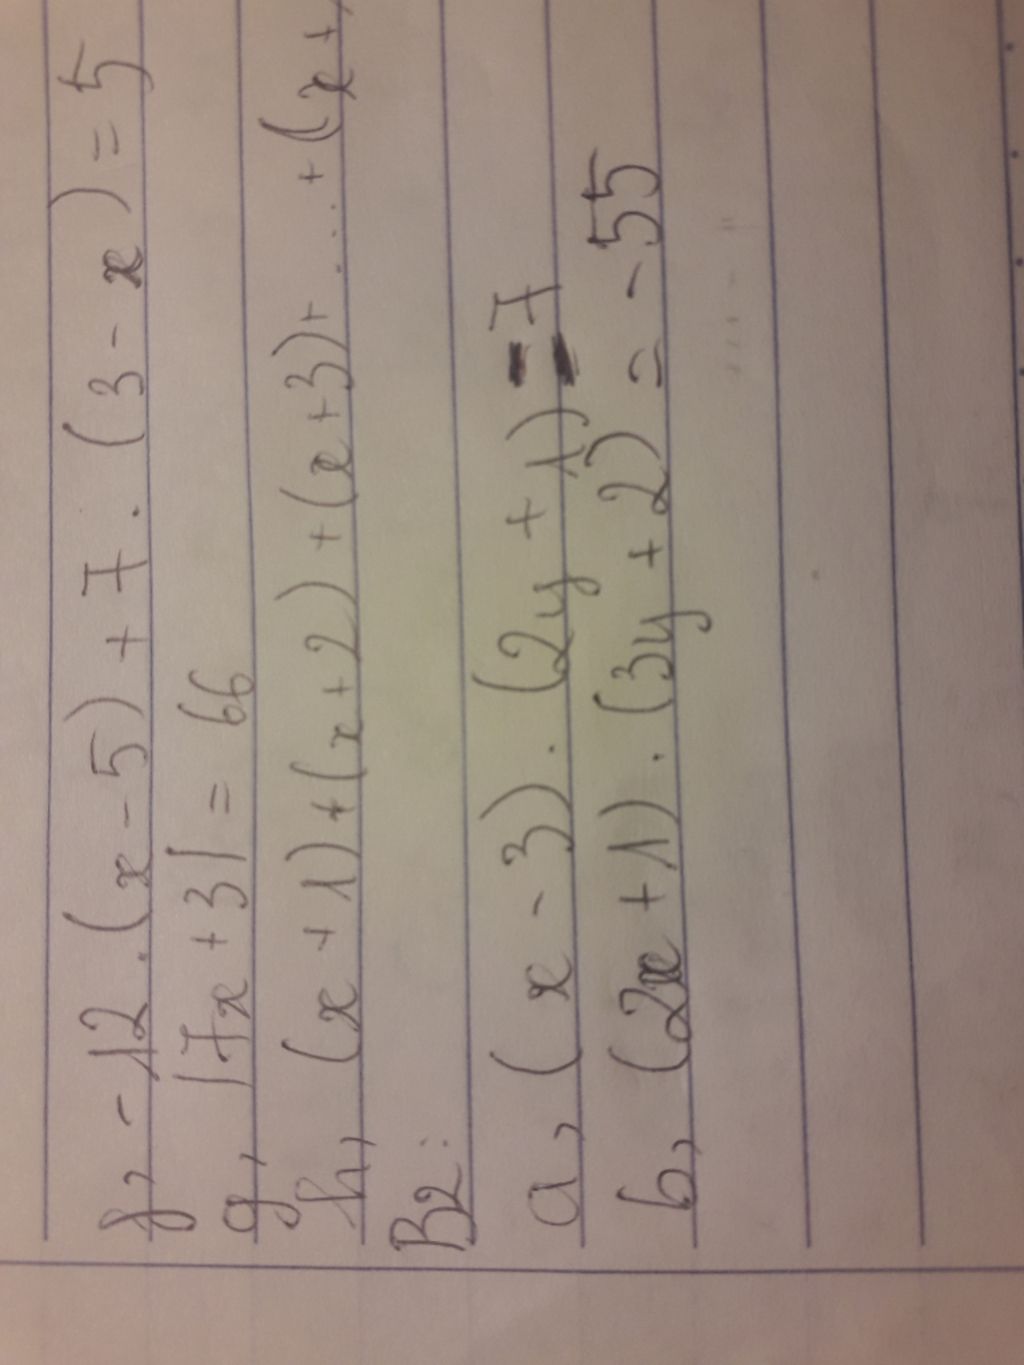 f, -12.(x-5)+7.(3-x)=5
g, |7x+3|=66
h, (x+1)+(x+2)+(x+3)+...+(x+
B2:
a, (x-3).(2y+1)=7
b, (2x+1).(3y+2)=-55